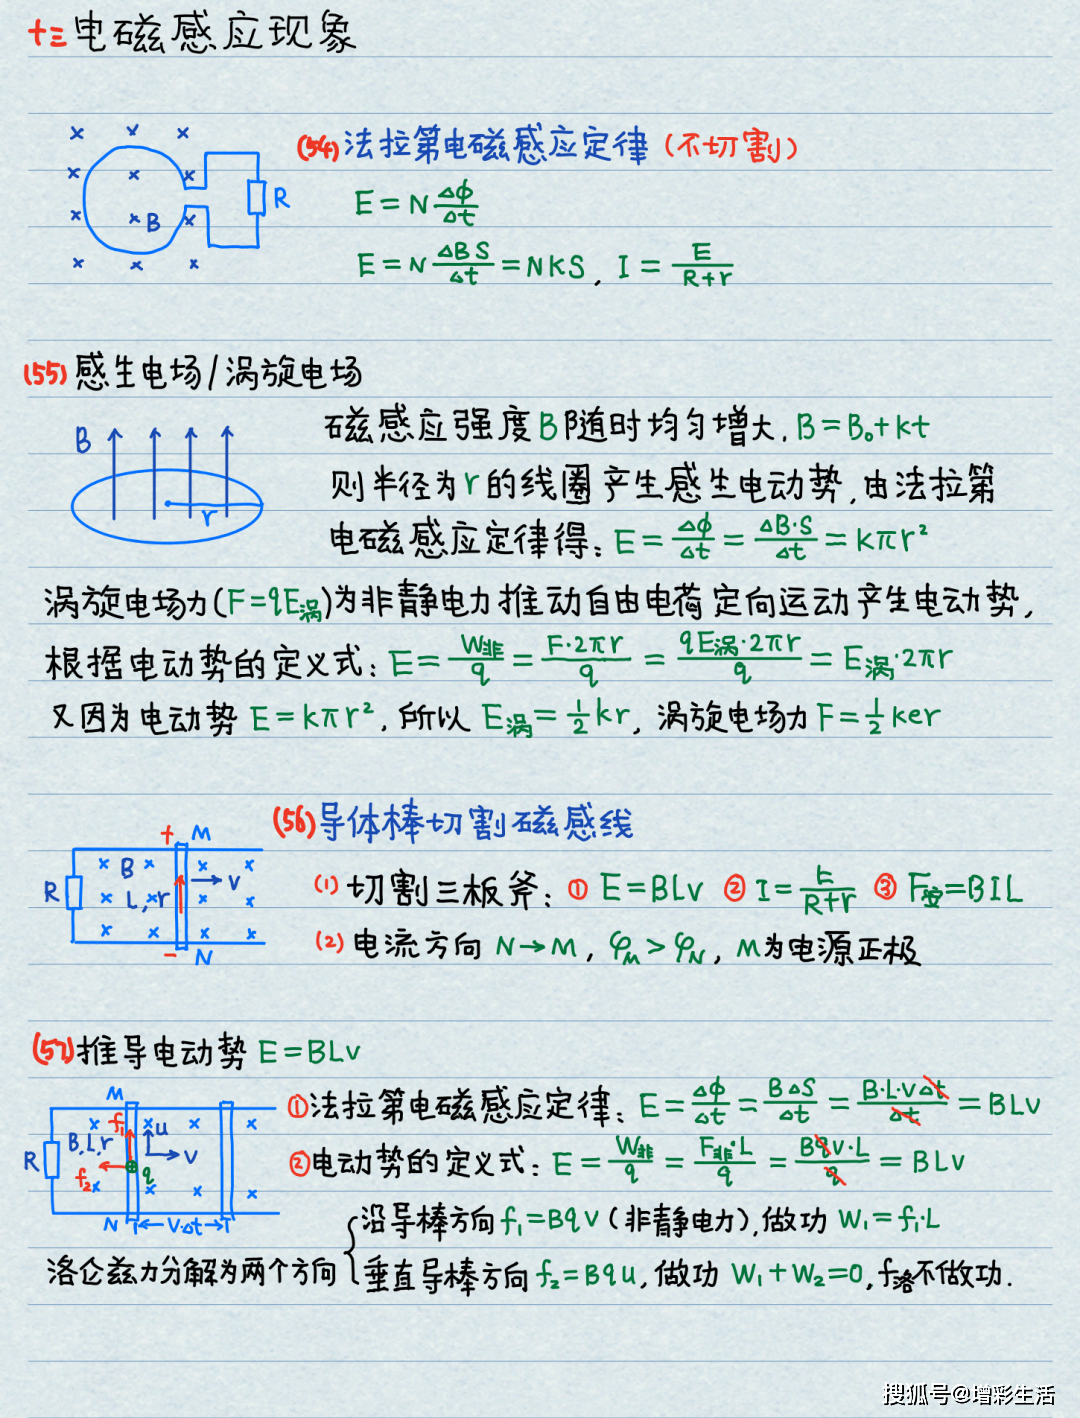 十三 电磁感应现象
(54) 法拉第电磁感应定律 (不切割)
E = N Δϕ/Δt
R
B
E = N ΔBS/Δt = NKS, I = E/(R+r)
(55) 感生电场/涡旋电场
磁感应强度B随时均匀增大, B = B₀+kt
B
则半径为r的线圈产生感生电动势, 由法拉第
r
电磁感应定律得: E = Δϕ/Δt = ΔB·S/Δt = kπr²
涡旋电场力(F=qE涡)为非静电力推动自由电荷定向运动产生电动势,
根据电动势的定义式: E = W非/q = F·2πr/q = qE涡·2πr/q = E涡·2πr
又因为电动势 E = kπr², 所以 E涡 = ½kr, 涡旋电场力 F = ½ker
(56) 导体棒切割磁感线
+ M
R B L,r v
- N
(1) 切割三板斧: ① E=BLv ② I = E/(R+r) ③ F安=BIL
(2) 电流方向 N→M, φM > φN, M为电源正极
(57) 推导电动势 E=BLv
M
f₁ u
R B,L,r v
f₂ q
N v·Δt
①法拉第电磁感应定律: E = Δϕ/Δt = BΔS/Δt = B·L·vΔt/Δt = BLv
②电动势的定义式: E = W非/q = F非·L/q = Bqv·L/q = BLv
沿导棒方向 f₁=Bqv (非静电力), 做功 W₁=f₁·L
洛仑兹力分解为两个方向
垂直导棒方向 f₂=Bqu, 做功 W₁+W₂=0, f洛不做功.
搜狐号@增彩生活